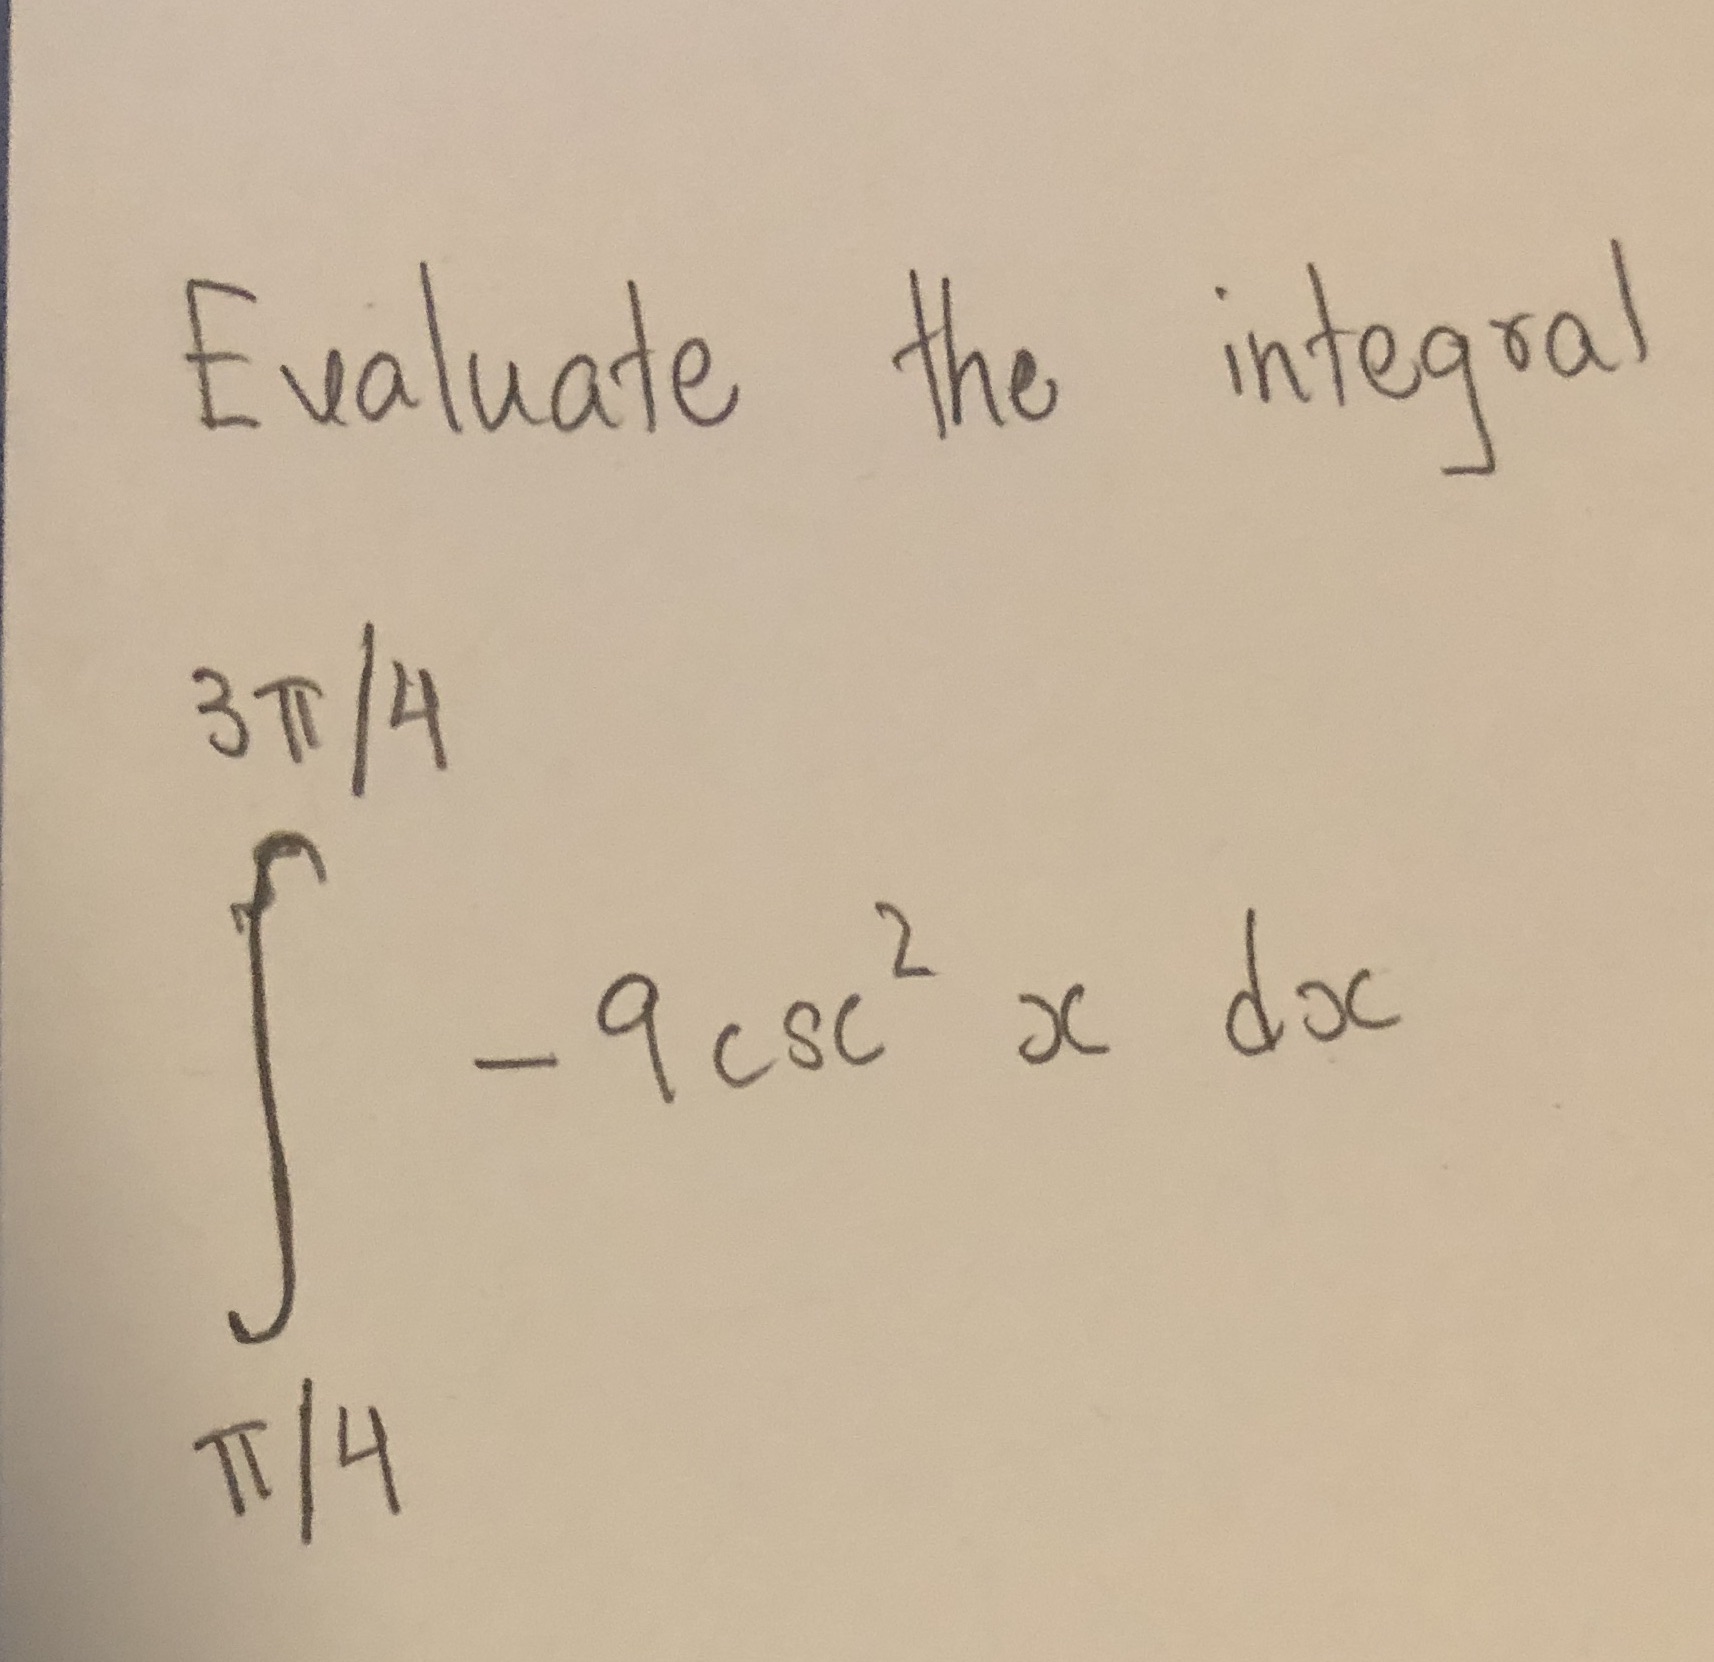 Evaluate the integral
3π/4
∫ -9csc² x dx
π/4